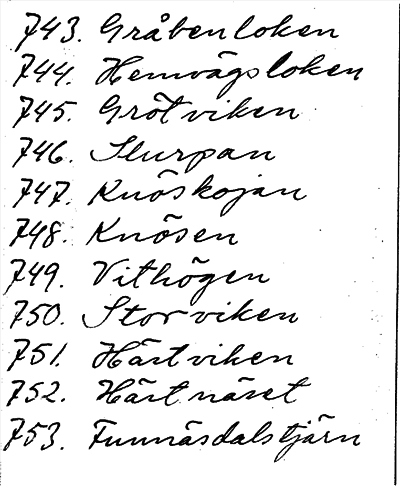 743. Gråbenloken
744. Hemvägsloken
745. Grötviken
746. Slurpan
747. Knöskojan
748. Knösen
749. Vithögen
750. Storviken
751. Härtviken
752. Härtnäset
753. Funnäsdalstjärn